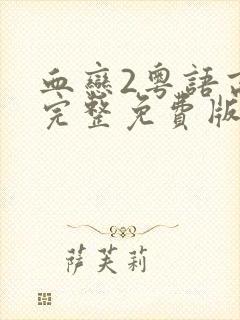 血戀2粵語
完整免費版
萨芙莉